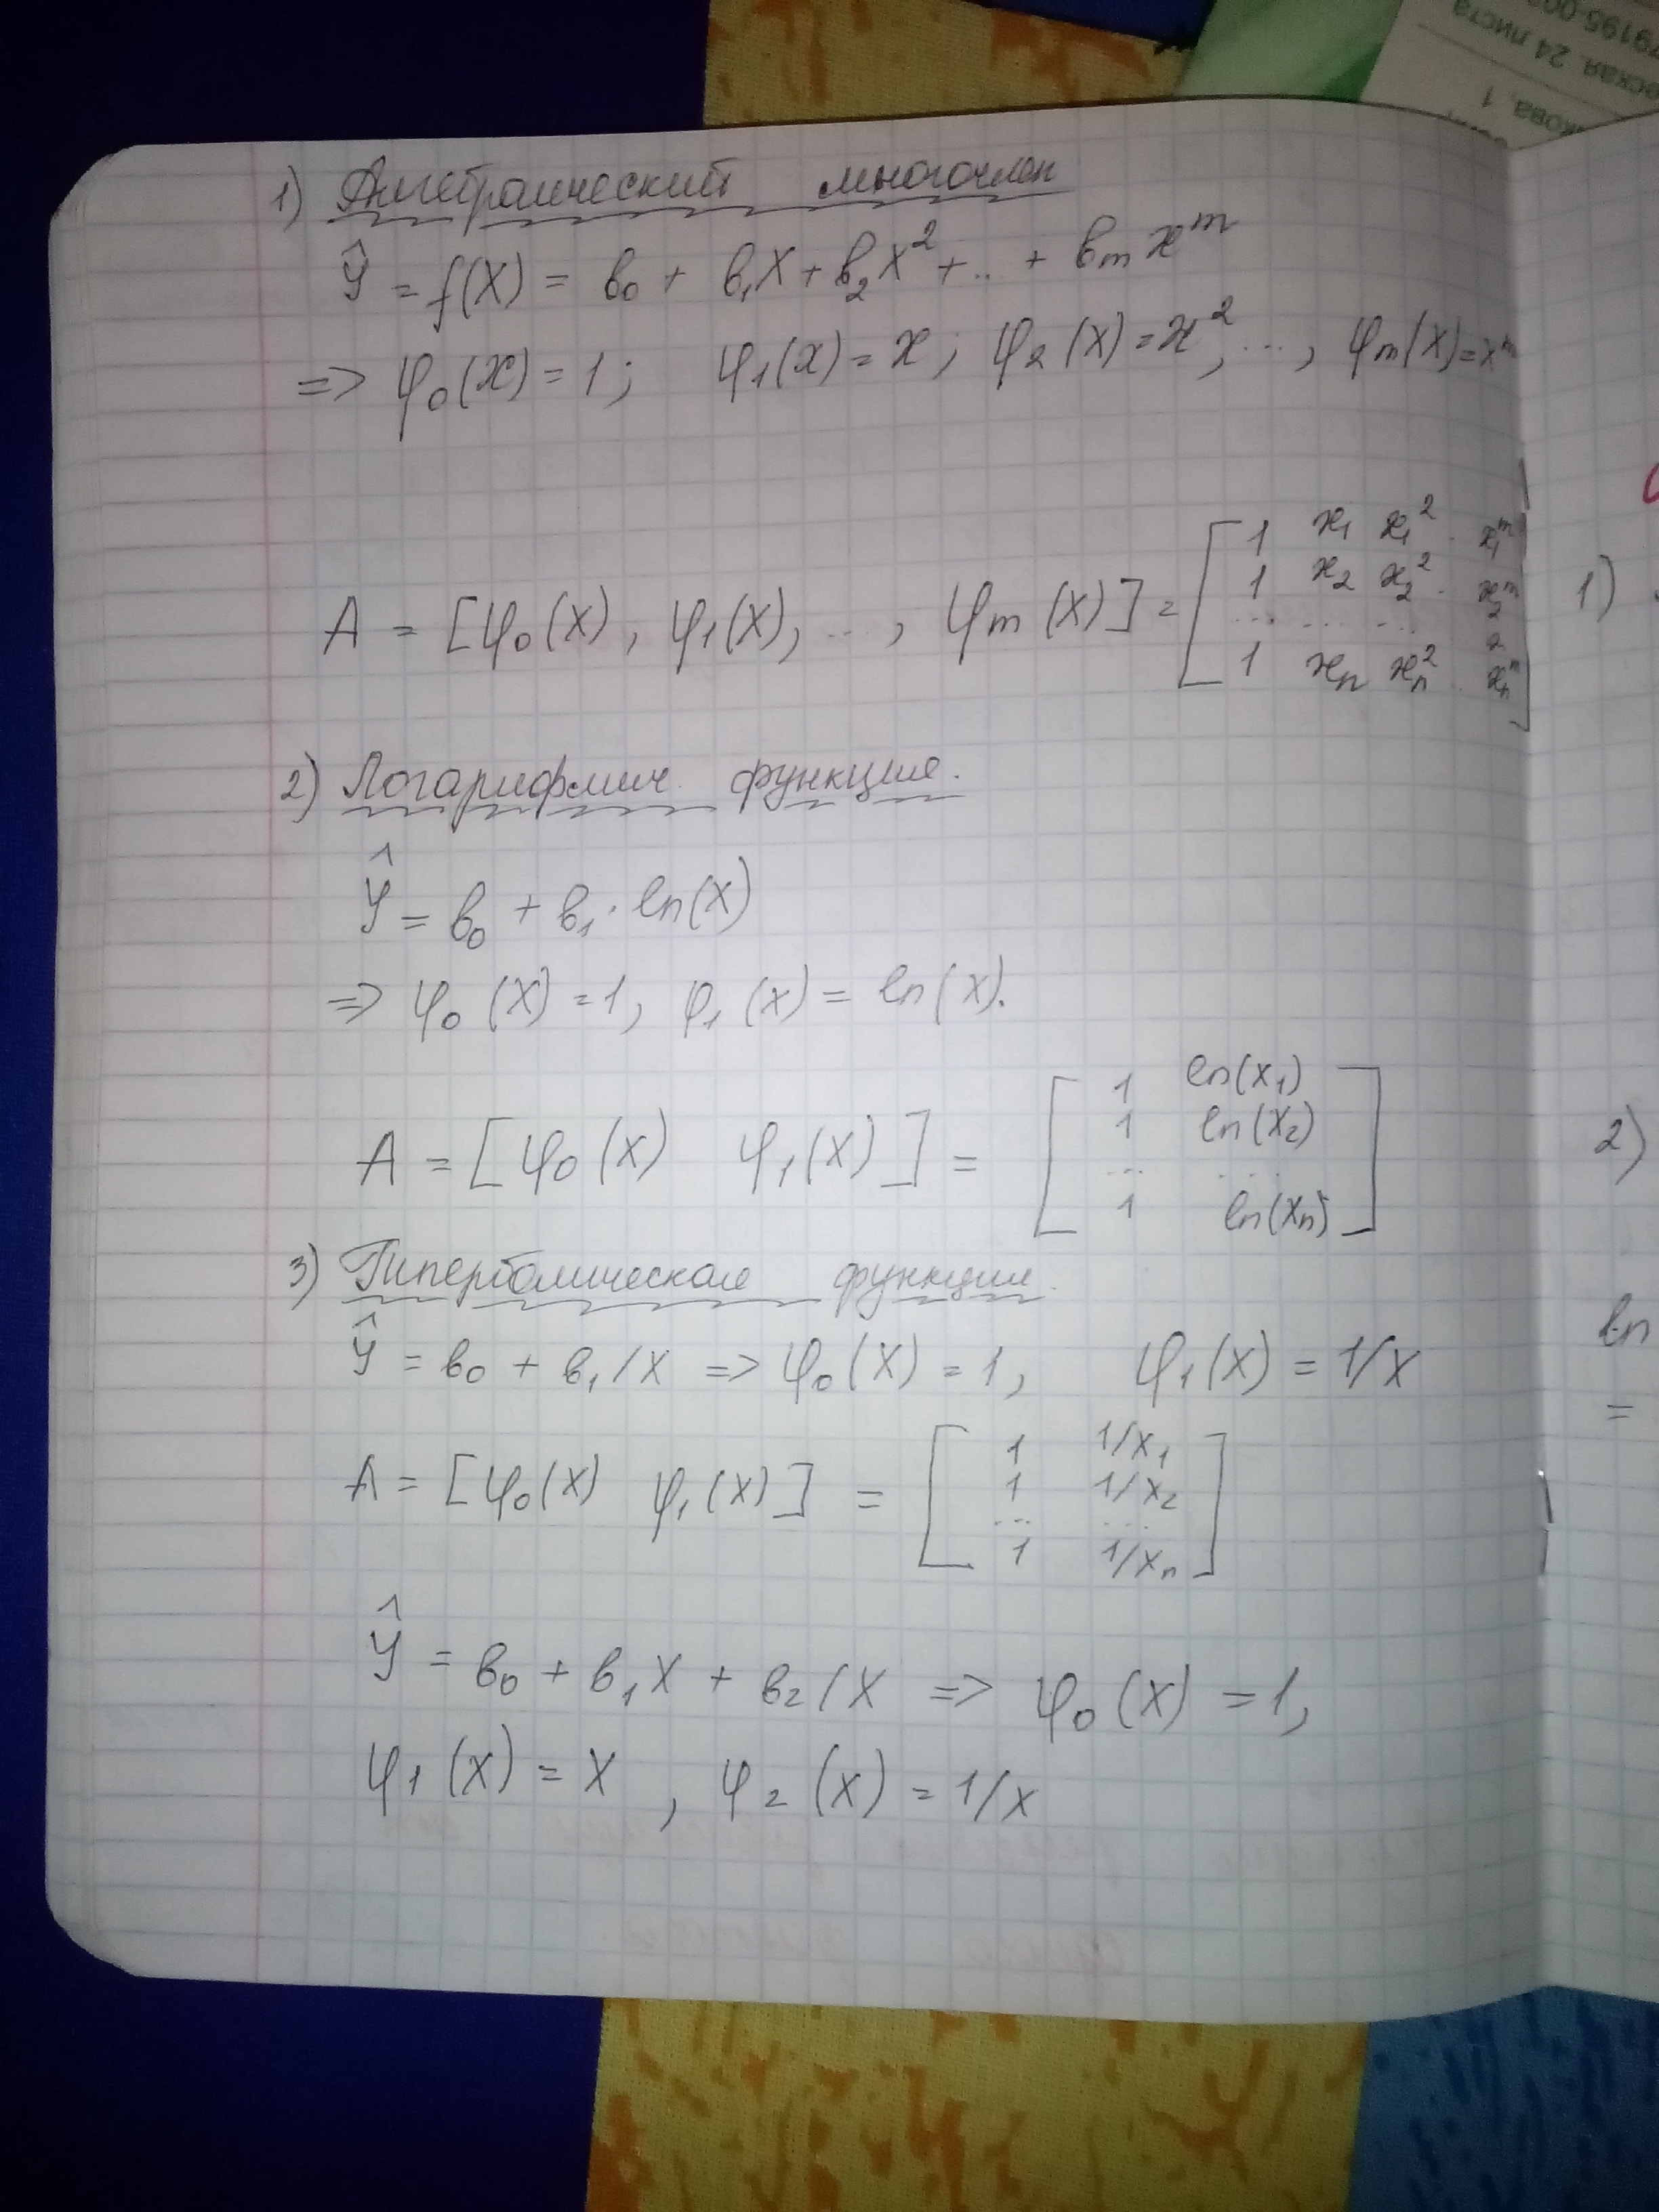 1) Алгебраический многочлен
Ŷ = f(X) = b₀ + b₁X + b₂X² + .. + bₘxᵐ
=> φ₀(x) = 1; φ₁(x) = x; φ₂(X) = x², ..., φₘ(X) = xᵐ
A = [φ₀(X), φ₁(X), ..., φₘ(X)] =
1 x₁ x₁² . x₁ᵐ
1 x₂ x₂² . x₂ᵐ
... ... ...
1 xₙ xₙ² .. xₙᵐ
2) Логарифмич. функция.
Ŷ = b₀ + b₁ · ln(X)
=> φ₀(X) = 1, φ₁(x) = ln(X).
A = [φ₀(X) φ₁(X)] =
1 ln(X₁)
1 ln(X₂)
... ...
1 ln(Xₙ)
3) Гиперболическая функция.
Ŷ = b₀ + b₁/X => φ₀(X) = 1, φ₁(X) = 1/X
A = [φ₀(X) φ₁(X)] =
1 1/X₁
1 1/X₂
... ...
1 1/Xₙ
Ŷ = b₀ + b₁X + b₂/X => φ₀(X) = 1,
φ₁(X) = X, φ₂(X) = 1/X
1)
2)
ln
=
24 листа
1